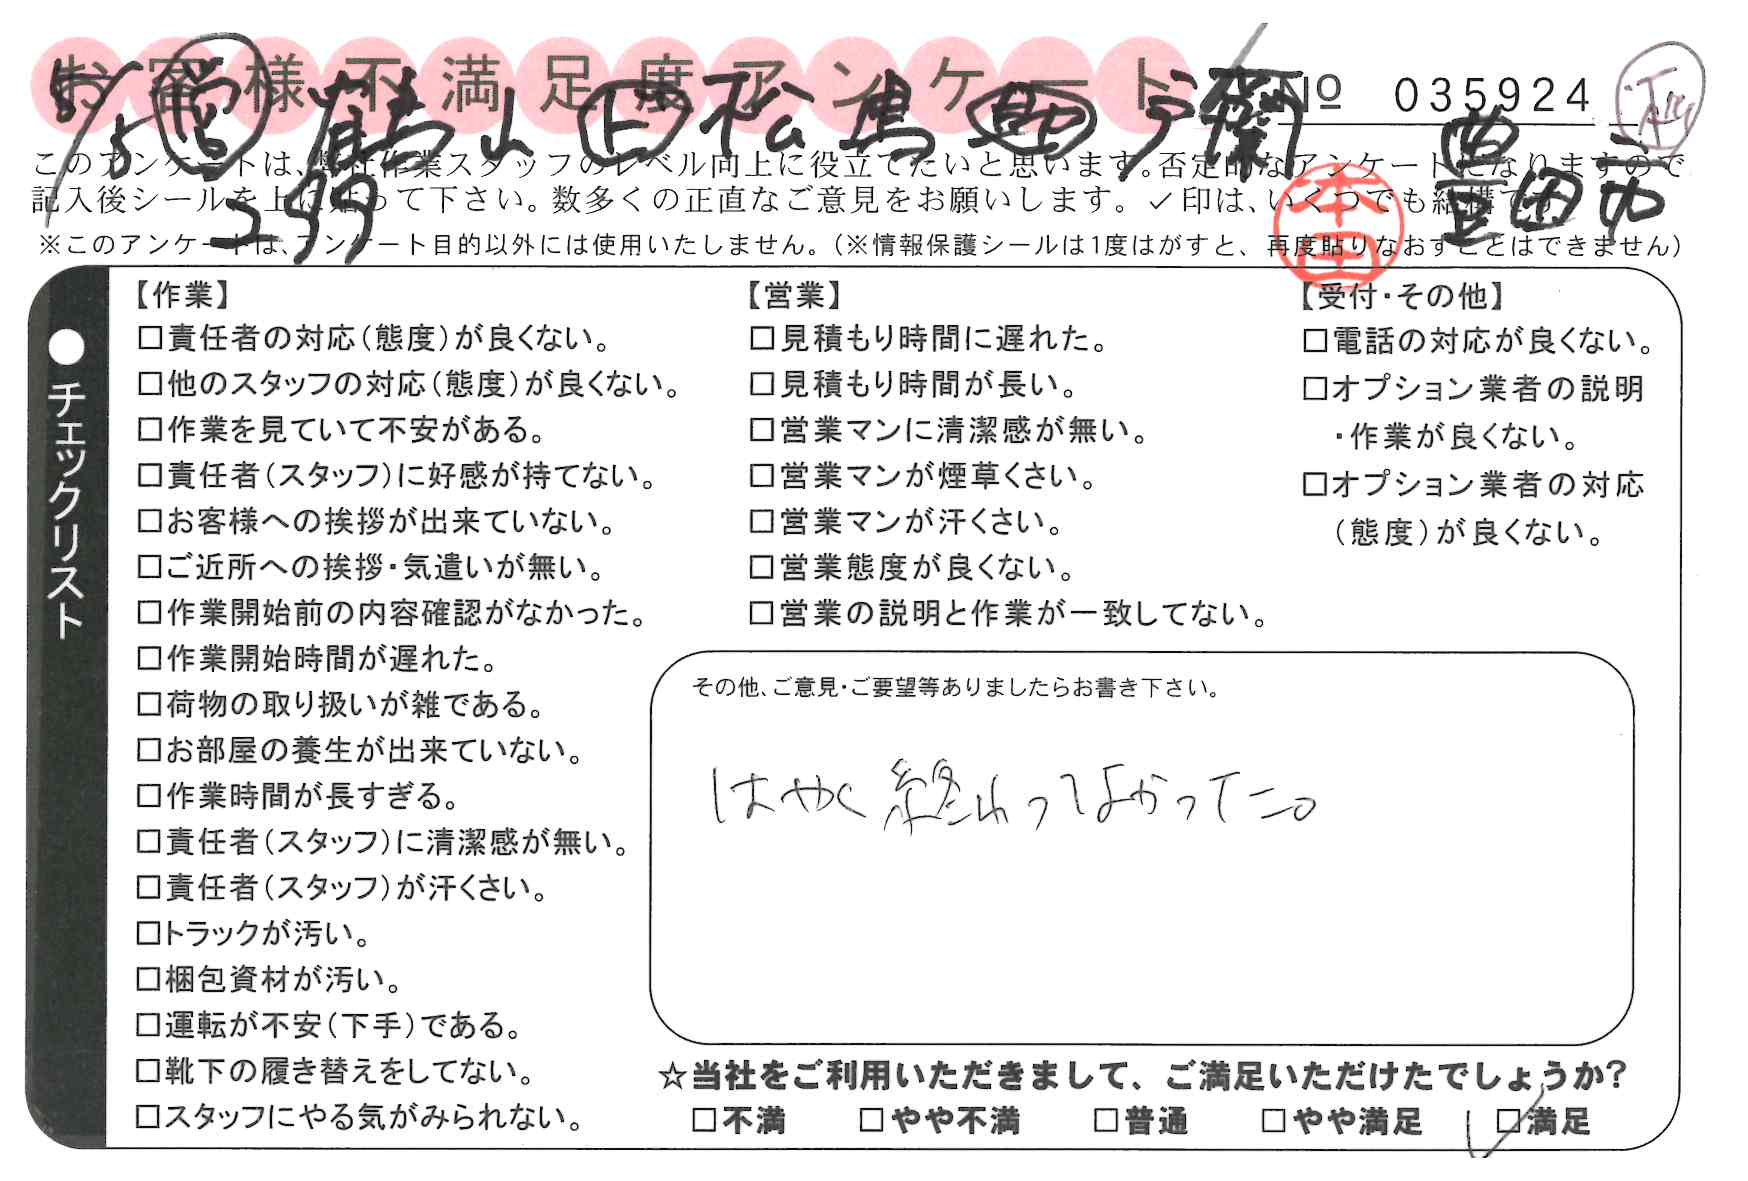 お客様不満足度アンケート
№ 035924
8/5 営 鶴山 上 松島 助 戸薗
豊田市
299
本田
このアンケートは、弊社作業スタッフのレベル向上に役立てたいと思います。否定的なアンケートになりますので
記入後シールを上に貼って下さい。数多くの正直なご意見をお願いします。✓印は、いくつでも結構です
※このアンケートは、アンケート目的以外には使用いたしません。（※情報保護シールは1度はがすと、再度貼りなおすことはできません）
●チェックリスト
【作業】
□責任者の対応（態度）が良くない。
□他のスタッフの対応（態度）が良くない。
□作業を見ていて不安がある。
□責任者（スタッフ）に好感が持てない。
□お客様への挨拶が出来ていない。
□ご近所への挨拶・気遣いが無い。
□作業開始前の内容確認がなかった。
□作業開始時間が遅れた。
□荷物の取り扱いが雑である。
□お部屋の養生が出来ていない。
□作業時間が長すぎる。
□責任者（スタッフ）に清潔感が無い。
□責任者（スタッフ）が汗くさい。
□トラックが汚い。
□梱包資材が汚い。
□運転が不安（下手）である。
□靴下の履き替えをしてない。
□スタッフにやる気がみられない。
【営業】
□見積もり時間に遅れた。
□見積もり時間が長い。
□営業マンに清潔感が無い。
□営業マンが煙草くさい。
□営業マンが汗くさい。
□営業態度が良くない。
□営業の説明と作業が一致してない。
【受付・その他】
□電話の対応が良くない。
□オプション業者の説明
・作業が良くない。
□オプション業者の対応
（態度）が良くない。
その他、ご意見・ご要望等ありましたらお書き下さい。
はやく終わってよかったです。
☆当社をご利用いただきまして、ご満足いただけたでしょうか？
□不満 □やや不満 □普通 □やや満足 □満足